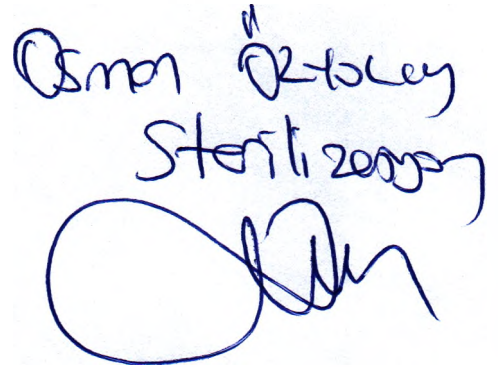 Osman Öztolay
Sterilizasyon